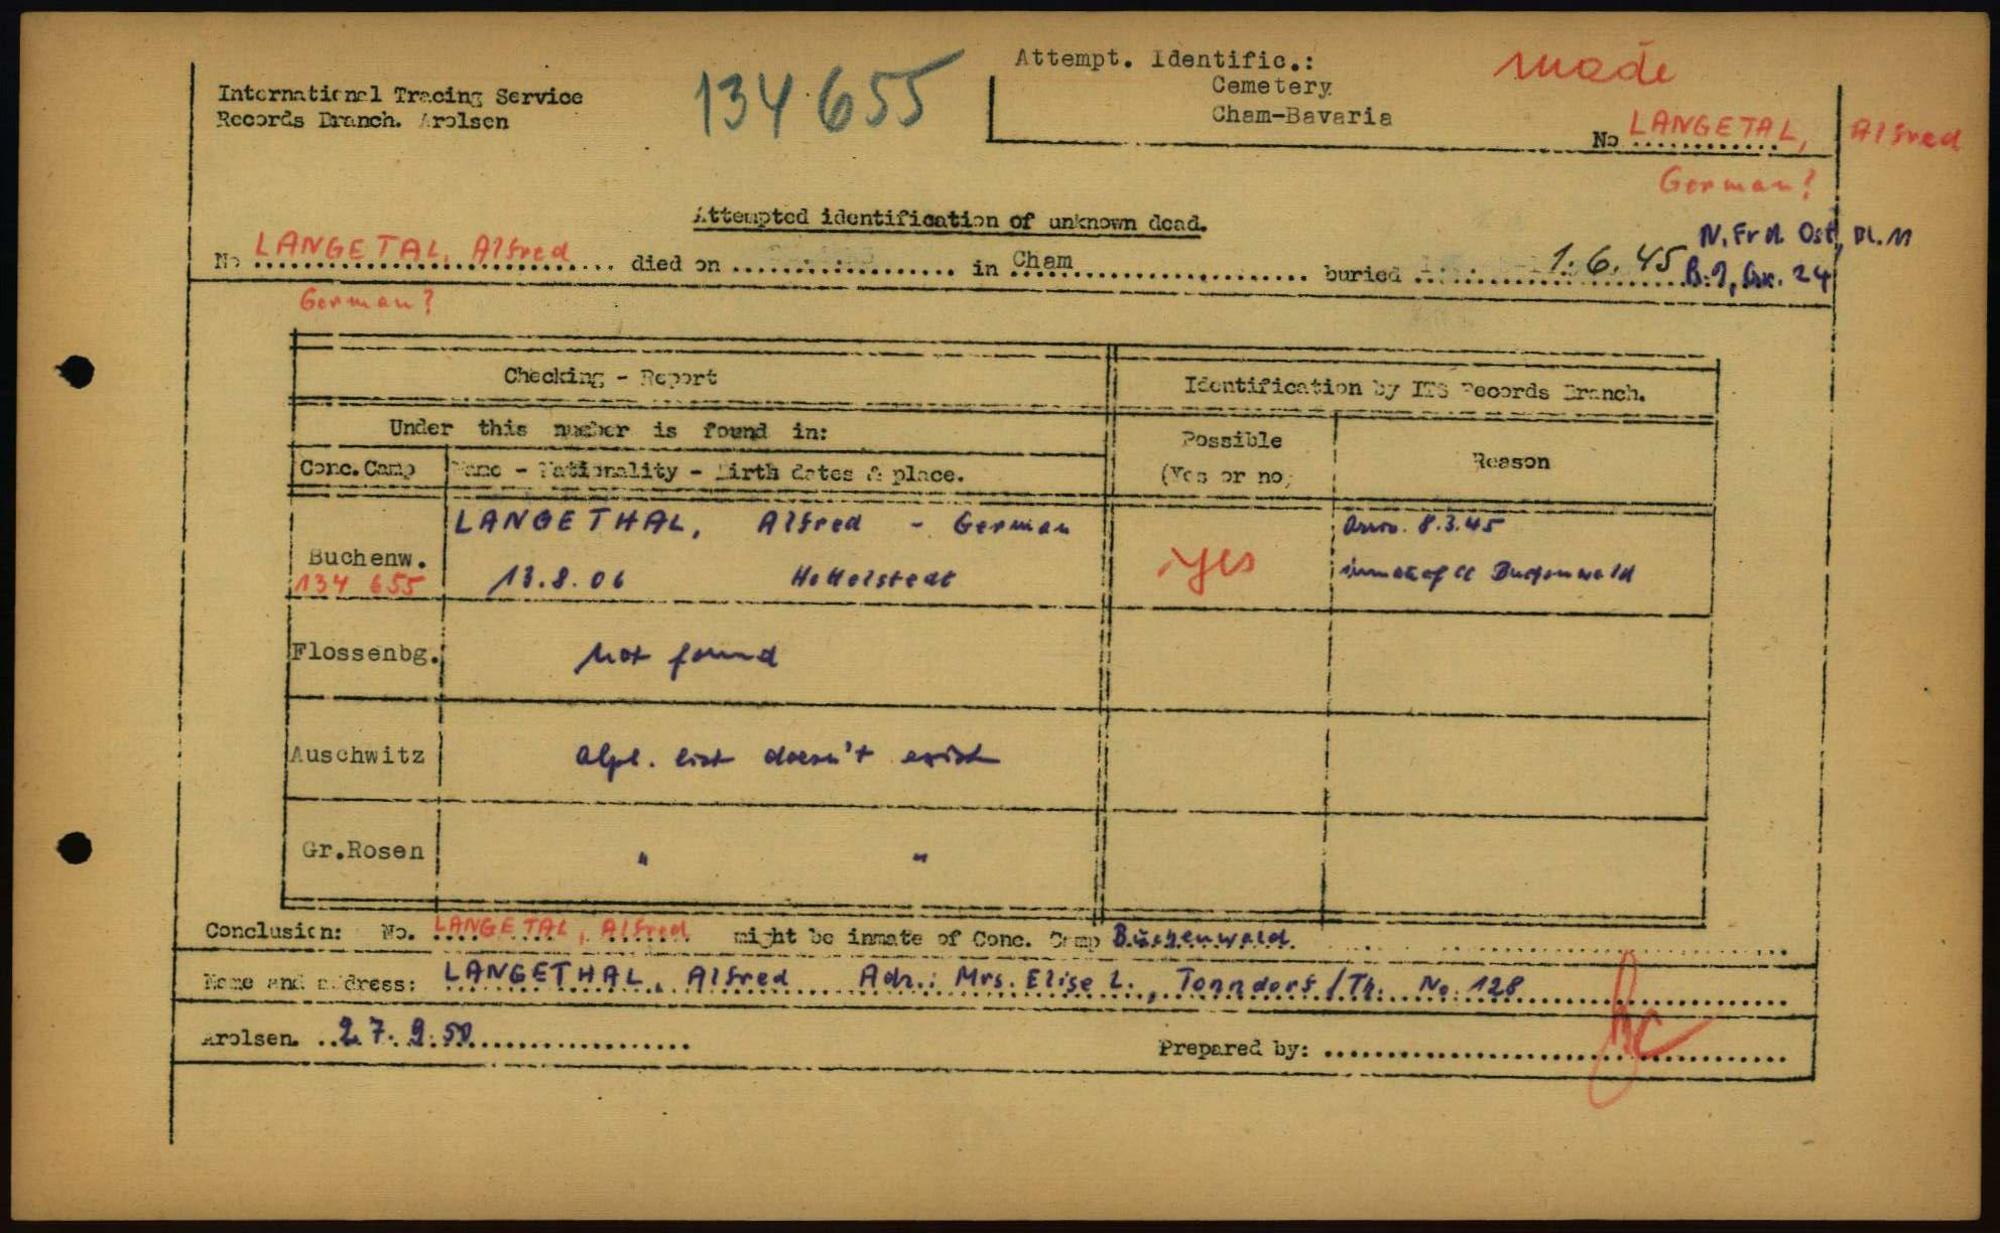 International Tracing Service
Records Branch. Arolsen
134 655
Attempt. Identific.:
Cemetery
Cham-Bavaria
made
No LANGETAL, Alfred
German?
Attempted identification of unknown dead.
N. Frd. Ost, Bl. 11
No LANGETAL, Alfred died on ........ in Cham ........ buried 1.6.45
German?
24
Checking - Report
Identification by ITS Records Branch.
Under this number is found in:
Possible
(Yes or no)
Reason
Conc. Camp
Name - Nationality - Birth dates & place.
LANGETHAL, Alfred - German
Buchenw.
134 655
13.8.06 Hottelstedt
yes
8.3.45
inmate of CC Buchenwald
Flossenbg.
not found
Auschwitz
alph. list doesn't exist
Gr.Rosen
" "
Conclusion: No. LANGETAL, Alfred might be inmate of Conc. Camp Buchenwald.
Name and address: LANGETHAL, Alfred Adr.: Mrs. Elise L., Tonndorf /Th. No. 128
Arolsen. 27.9.50
Prepared by: